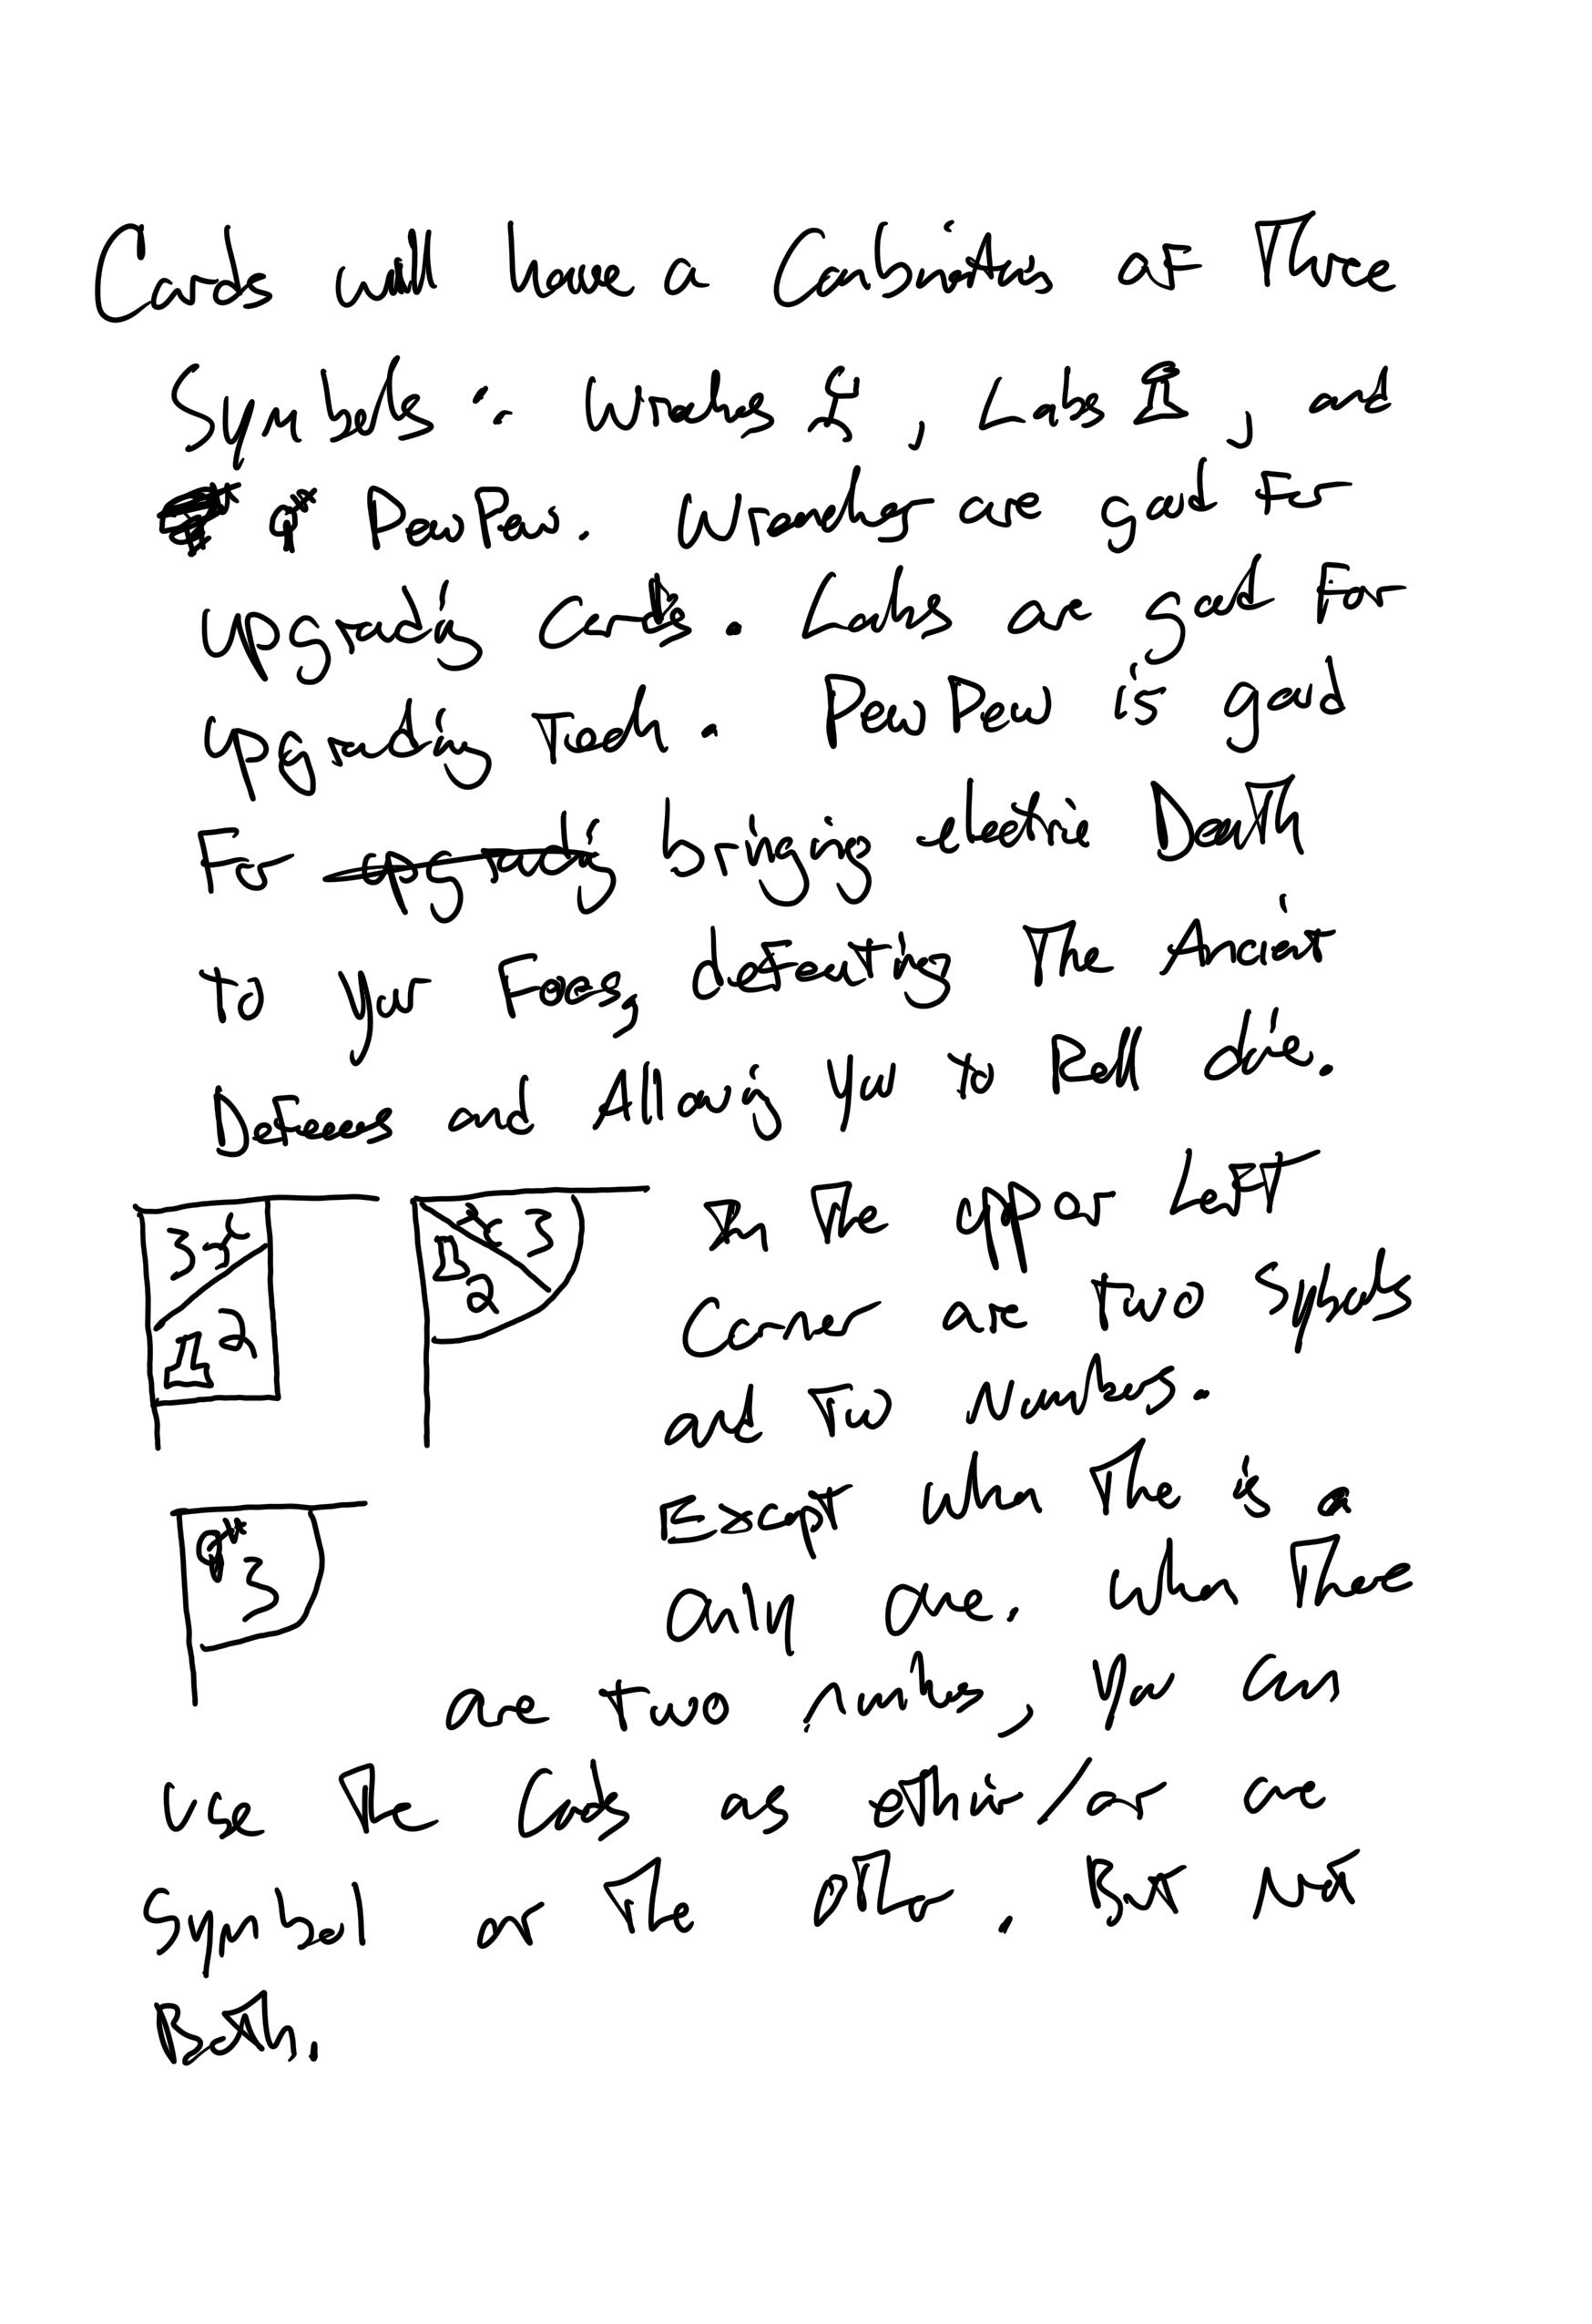 Cards will have a Combination of Three
Symbols: Wrenches, Labs, and
PewPews. Wrenches are good for
upgrading Cards. Labs are good for
upgrading Tech. PewPew is good
For upgrading bringing electric Death
to your Foes, defeating The Ancient
Defenses and Allowing you to Roll die.
In The upper Left
Corner are two Symbols
and Two Numbers.
Except when There is a
only one. When There
are two numbers, you can
use The Cards as either/or one
Symbol or The other. But not
Both.
3
2
3
2
3